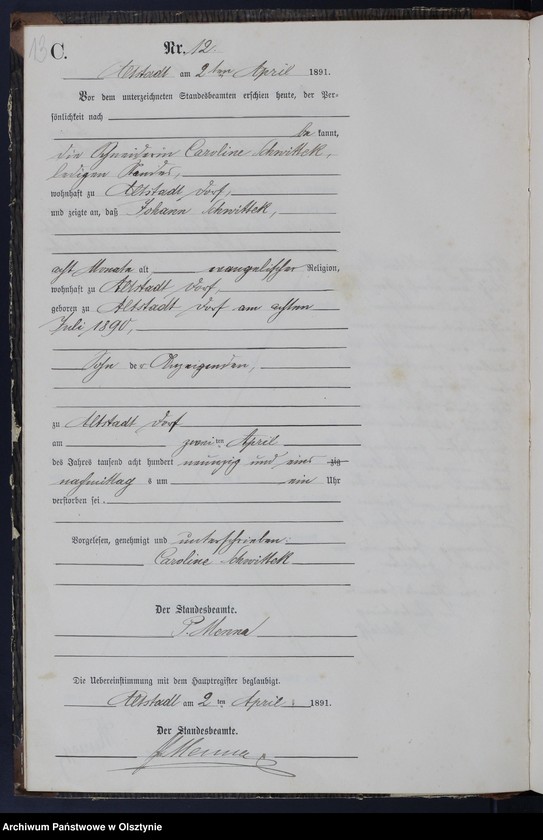 13
C.
Nr. 12.
Altstadt am 2ten April 1891.
Vor dem unterzeichneten Standesbeamten erschien heute, der Per-
sönlichkeit nach
be kannt,
die Schneiderin Caroline Schwittek,
ledigen Standes,
wohnhaft zu Altstadt Dorf,
und zeigte an, daß Johann Schwittek,
acht Monate alt evangelischer Religion,
wohnhaft zu Altstadt Dorf,
geboren zu Altstadt Dorf am achten
Juli 1890,
Sohn der Anzeigenden,
zu Altstadt Dorf
am zweiten April
des Jahres tausend acht hundert neunzig und eins zig
nachmittags um ein Uhr
verstorben sei.
Vorgelesen, genehmigt und unterschrieben:
Caroline Schwittek
Der Standesbeamte.
P. Menna
Die Uebereinstimmung mit dem Hauptregister beglaubigt.
Altstadt am 2ten April 1891.
Der Standesbeamte.
P. Menna
Archiwum Państwowe w Olsztynie